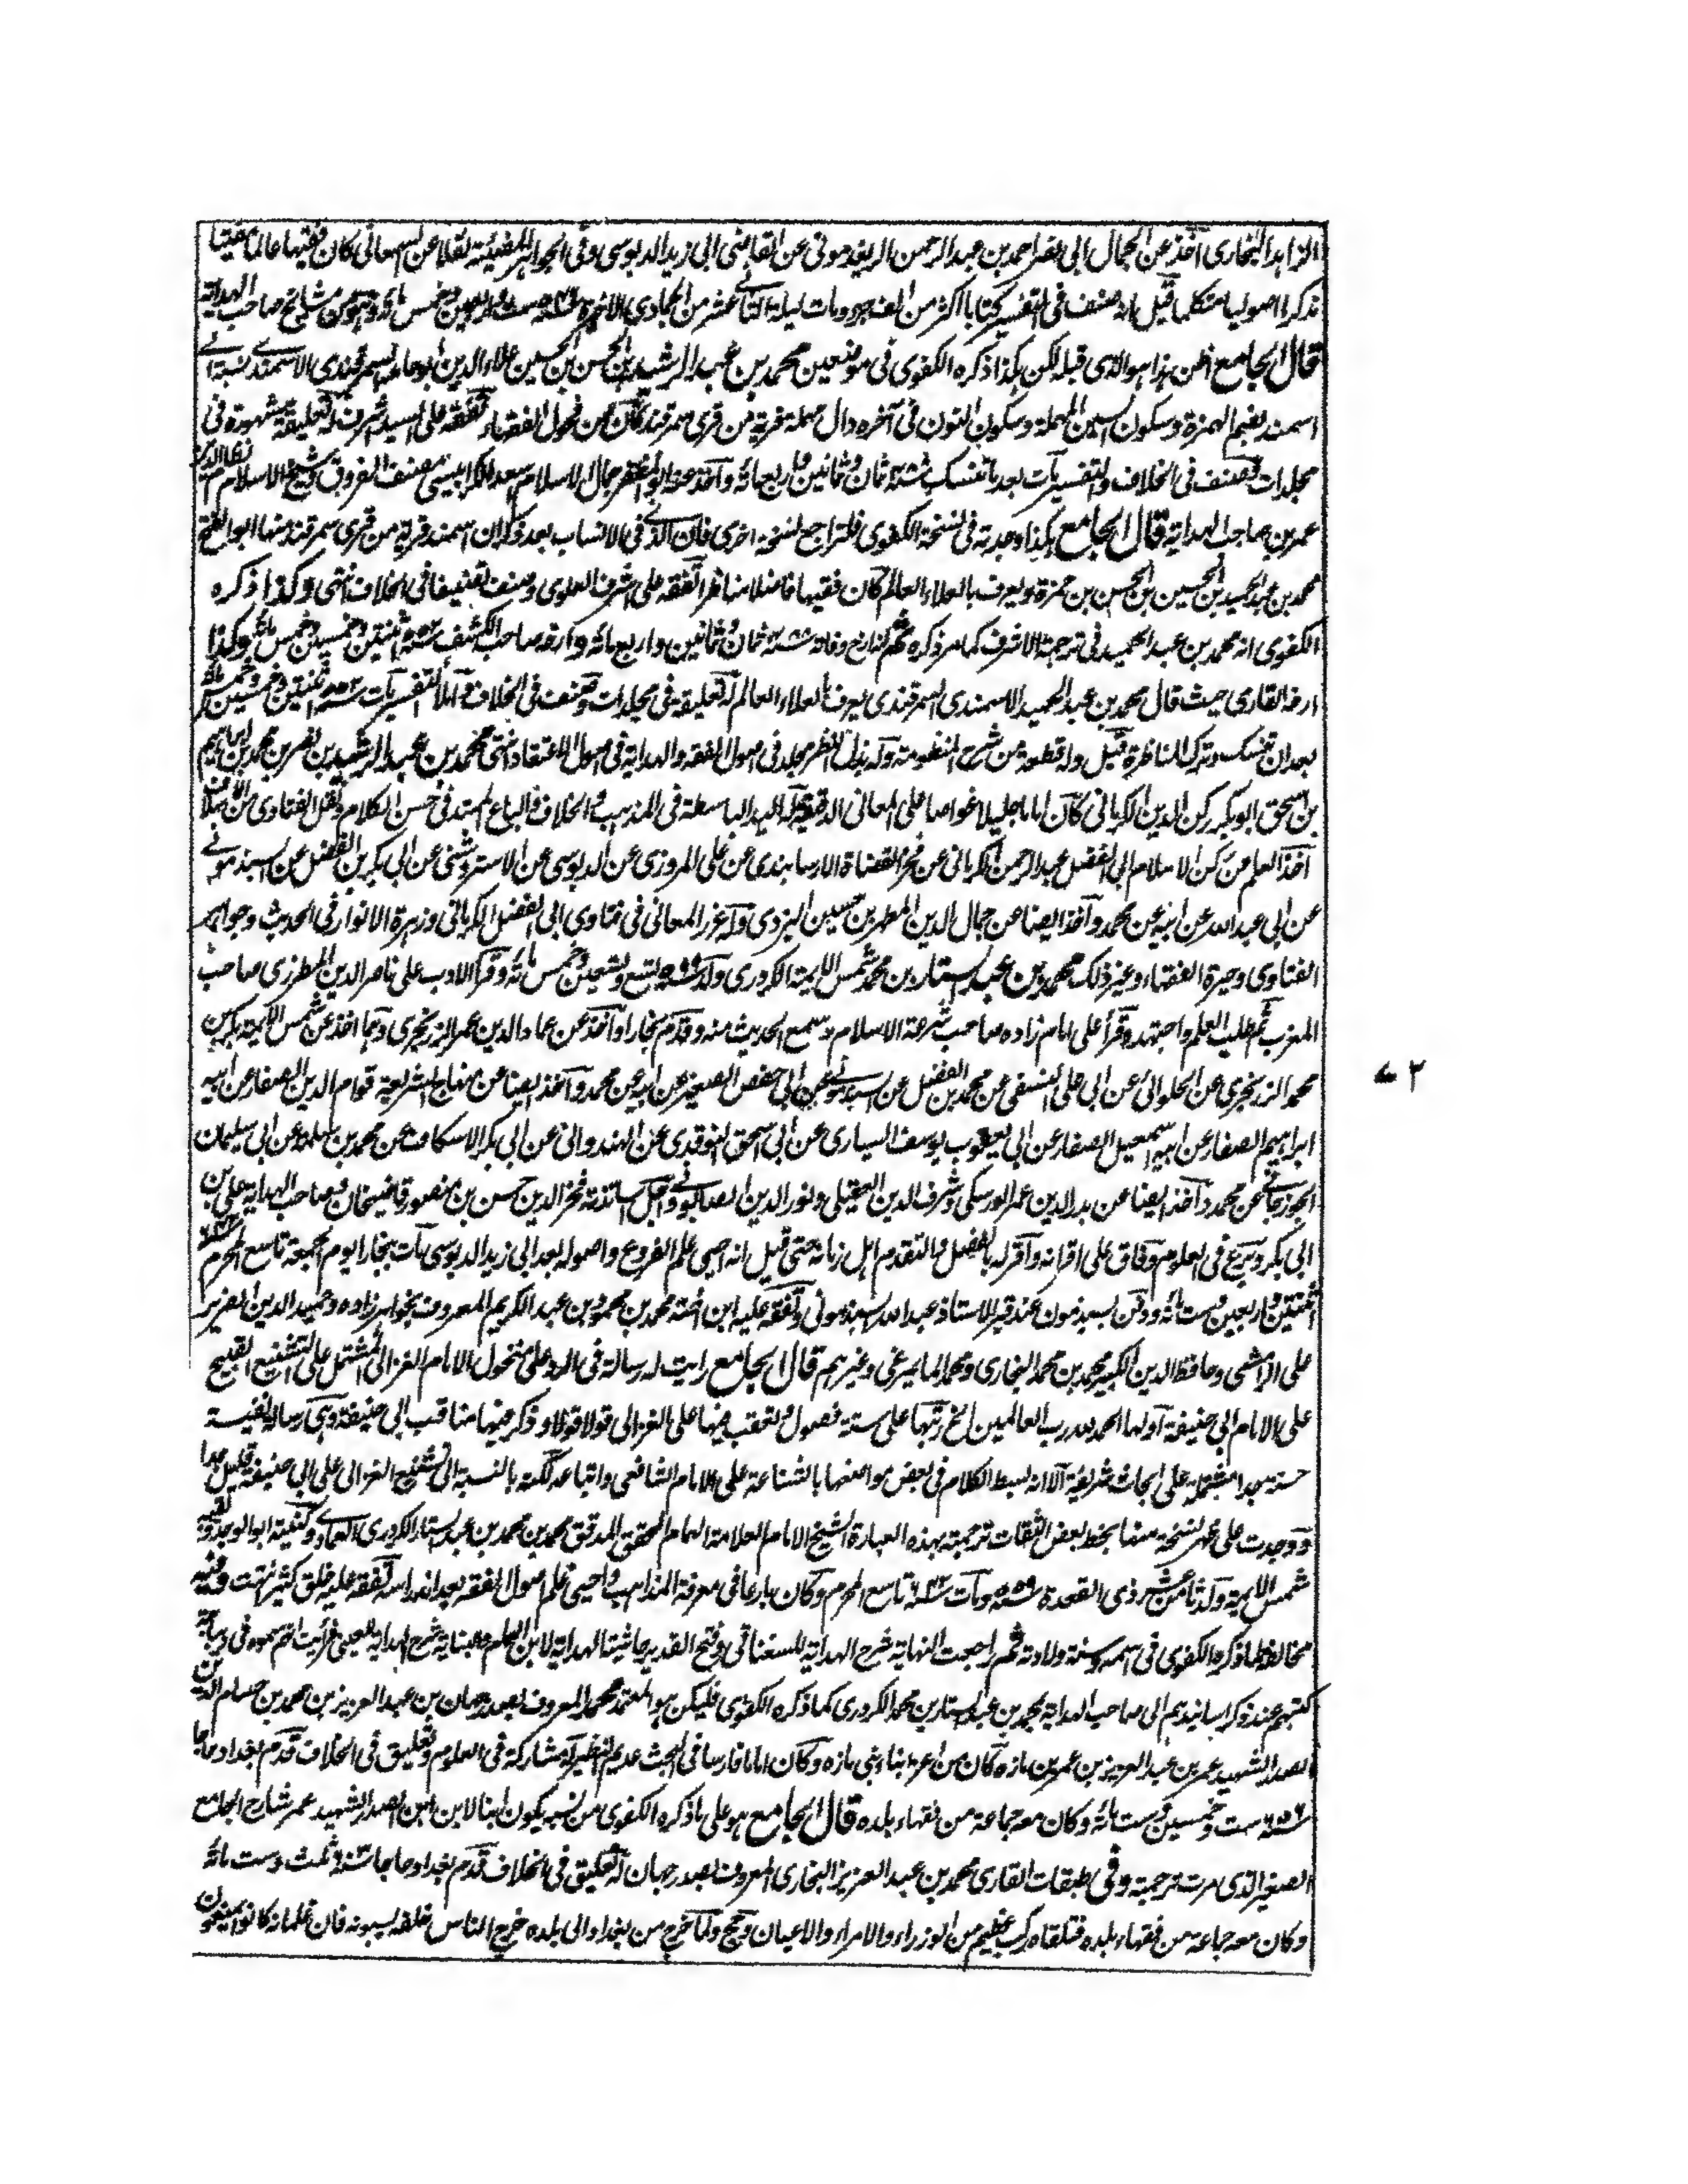 الزاهد البخارى آخذ عن الجمال ابى نصر احمد بن عبد الرحمن الريغدمونى عن القاضى ابى زيد الدبوسى وفى الجواهر المضيئة نقلا عن السمعانى كان فقيها عالما مفتيا
مذكرا اصوليا متكلما قيل انه صنف فى التفسير كتابا اكثر من الف جزء ومات ليلة الثانى عشر من الجمادى الاخرة سنة ست واربعين وخمس مائة وهو من مشائخ صاحب الهداية
قال الجامع اظن هذا هو الذى قبله لكن هكذا ذكره الكفوى فى موضعين محمد بن عبد الرشيد بن الحسن بن الحسين علاء الدين ابو حامد السمرقندى الاسمندى نسبة الى
اسمند بضم الهمزة وسكون السين المهملة وسكون النون فى آخره دال مهملة قرية من قرى سمرقند كان من فحول الفقهاء تفقه على السيد اشرف له تعليقة مشهورة فى
مجلدات وصنف فى الخلاف والتفسير مات بعد ما تنسك سنة ٤٨٨ ثمان وثمانين واربعمائة وآخذ عنه ابو المظفر جمال الاسلام اسعد الكرابيسى مصنف الفروق وشيخ الاسلام نظام الدين
عمر بن صاحب الهداية قال الجامع هكذا وجدته فى نسخة الكفوى فلتراجع نسخة اخرى فان الذى فى الانساب بعد ذكر ان اسمند قرية من قرى سمرقند منها ابو الفتح
محمد بن عبد الحميد بن الحسين بن الحسن بن حمزة ويعرف بالعلاء العالم كان فقيها فاضلا مناظرا تفقه على اشرف العلوى وصنف تصنيفا فى الخلاف انتهى وكذا ذكره
الكفوى انه محمد بن عبد الحميد فى ترجمة الاشرف كما مر ذكره ثم تاريخ وفاته سنة ٤٨٨ ثمان وثمانين واربع مائة وارخه صاحب الكشف سنة ٥٥٢ ثنتين وخمسين وخمس مائة وكذا
ارخه القارى حيث قال محمد بن عبد الحميد الاسمندى السمرقندى يعرف بالعلاء العالم له تعليقة فى مجلدات وصنف فى الخلاف واملأ التفسير مات سنة ٥٥٢ ثنتين وخمسين وخمس مائة
بعد ان تنسك وترك المناظرة قيل وله قطعة من شرح المنظومة وله بذل النظر مجلد فى اصول الفقه والهداية فى اصول الاعتقاد انتهى محمد بن عبد الرشيد بن نصر بن محمد بن ابراهيم
بن اسحق ابو بكر ركن الدين الكرمانى كان اماما جليلا غواصا على المعانى الدقيقة له اليد الباسطة فى المذهب والخلاف والباع الممتد فى حسن الكلام ونقل الفتاوى من
آخذ العلم عن ركن الاسلام ابى الفضل عبد الرحمن الكرمانى عن فخر القضاة الارسابندى عن على المروزى عن الدبوسى عن الاستروشنى عن ابى بكر بن الفضل عن السبذمونى
عن ابى عبد الله عن ابيه عن محمد وآخذ ايضا عن جمال الدين المطهر بن حسين اليزدى وله غرر المعانى فى فتاوى ابى الفضل الكرمانى وزهرة الانوار فى الحديث وجواهر
الفتاوى وحيرة الفقهاء وغير ذلك محمد بن عبد الستار بن محمد شمس الايمة الكردرى ولد سنة ٥٩٩ تسع وتسعين وخمس مائة وقرأ الادب على ناصر الدين المطرزى صاحب
المغرب ثم طلب العلم واجتهد وقرأ على امام زاده صاحب شرعة الاسلام وسمع الحديث منه وقدم بخارا وآخذ عن عماد الدين عمر الزرنجرى وهما اخذ عن شمس الايمة بكر بن
محمد الزرنجرى عن الحلوائى عن ابى على النسفى عن محمد بن الفضل عن السبذمونى عن ابى حفص الصغير عن ابيه عن محمد وآخذ ايضا عن منهاج الشريعة قوام الدين الصفار عن ابيه
ابراهيم الصفار عن ابيه اسمعيل الصفار عن ابى يعقوب يوسف السيارى عن ابى اسحق النوقدى عن الهندوانى عن ابى بكر الاسكاف عن محمد بن سلمة عن ابى سليمان
الجوزجانى عن محمد وآخذ ايضا عن بدر الدين عمر الورسكى وشرف الدين العقيلى ونور الدين الصابونى واجل اساتذته فخر الدين حسن بن منصور قاضيخان وصاحب الهداية على بن
ابى بكر وبرع فى العلوم وفاق على اقرانه واقر له بالفضل والتقدم اهل زمانه حتى قيل انه احيى علم الفروع واصوله بعد ابى زيد الدبوسى مات ببخارا يوم الجمعة تاسع المحرم سنة ٦٤٢
اثنتين واربعين وست مائة ودفن بسبذمون عند قبر الاستاذ عبد الله السبذمونى وتفقه عليه ابن اخته محمد بن محمود بن عبد الكريم المعروف بخواهر زاده وحميد الدين الضرير
على الرامشى وحافظ الدين الكبير محمد بن محمد البخارى ومحمد المايمرغى وغيرهم قال الجامع رايت له رسالة فى الرد على منخول الامام الغزالى المشتمل على التشنيع القبيح
على الامام ابى حنيفة اولها الحمد لله رب العالمين الخ رتبها على ستة فصول وتعقب فيها على الغزالى قولا قولا وذكر فيها مناقب ابى حنيفة وهى رسالة نفيسة
حسنة جدا مشتملة على ابحاث شريفة الا انه بسط الكلام فى بعض مواضعها بالشناعة على الامام الشافعى واتباعه لكنه بالنسبة الى تشنيع الغزالى على ابى حنيفة قليل جدا
ووجدت على ظهر نسخة منها بخط بعض الثقات ترجمته بهذه العبارة الشيخ الامام العلامة الهمام المحقق المدقق محمد بن محمد بن عبد الستار الكردرى العمادى وكنيته ابو الوجد ولقبه
شمس الايمة ولد ثامن عشر ذى القعدة سنة ٥٥٩ ومات سنة ٦٤٢ تاسع المحرم وكان بارعا فى معرفة المذاهب واحيى علم اصول الفقه بعد اندراسه تفقه عليه خلق كثير انتهت وفيه
مخالفة لما ذكره الكفوى فى اسمه وسنة ولادته ثم راجعت النهاية شرح الهداية للسغناقى وفتح القدير حاشية الهداية لابن الهمام والبناية شرح الهداية للعينى فرأيت انهم سموه فى ديباجة
كتبهم عند ذكر اسانيدهم الى صاحب الهداية بمحمد بن عبد الستار بن محمد الكردرى كما ذكره الكفوى فليكن هو المعتمد محمد المعروف بصدر جهان بن عبد العزيز بن محمد بن حسام الدين
الصدر الشهيد عمر بن عبد العزيز بن عمر بن مازه كان من اعزه ابناء بنى مازه وكان اماما فارسا فى البحث عديم النظير له مشاركة فى العلوم وتعليق فى الخلاف قدم بغداد حاجا
سنة ٦٥٦ ست وخمسين وست مائة وكان معه جماعة من فقهاء بلده قال الجامع هو على ما ذكره الكفوى من نسبه يكون ابنا لابن ابن الصدر الشهيد عمر شارح الجامع
الصغير الذى مرت ترجمته وفى طبقات القارى محمد بن عبد العزيز البخارى المعروف بصدر جهان له تعليق فى الخلاف قدم بغداد حاجا سنة ٦٠٣ ثلث وست مائة
وكان معه جماعة من فقهاء بلده فتلقاه ركب عظيم من الوزراء والامراء والاعيان وحج ولما خرج من بغداد الى بلده خرج الناس خلفه يسبونه فان غلمانه كانوا يمنعون
٧٢